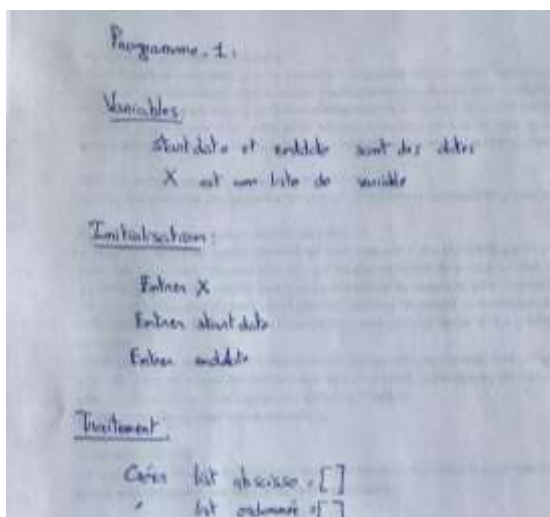 Programme. 1:
Variables
startdate et enddate sont des dates
X est une liste de variable
Initialisation:
Entrer X
Entrer startdate
Entrer enddate
Traitement
Créer list abscisse = []
" list ordonnée = []